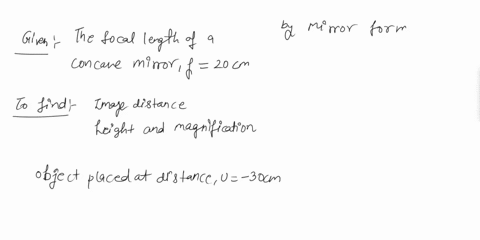 Given:- The focal length of a
concave mirror, f = 20 cm
To find:- Image distance
height and magnification
object placed at distance, u = -30cm
by mirror form